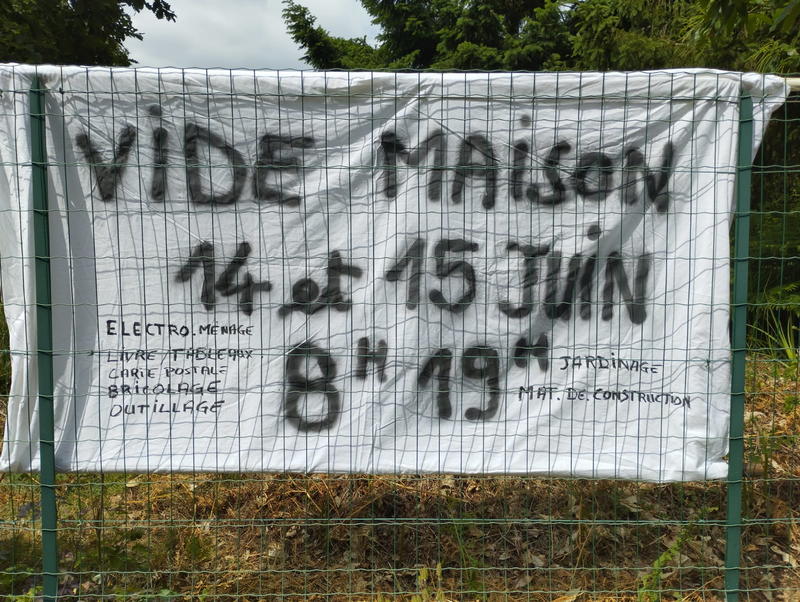 VIDE MAISON
14 et 15 JUIN
8H 19H
ELECTRO.MENAGE
LIVRE/TABLEAUX
CARTE POSTALE
BRICOLAGE
OUTILLAGE
JARDINAGE
MAT.DE.CONSTRUCTION